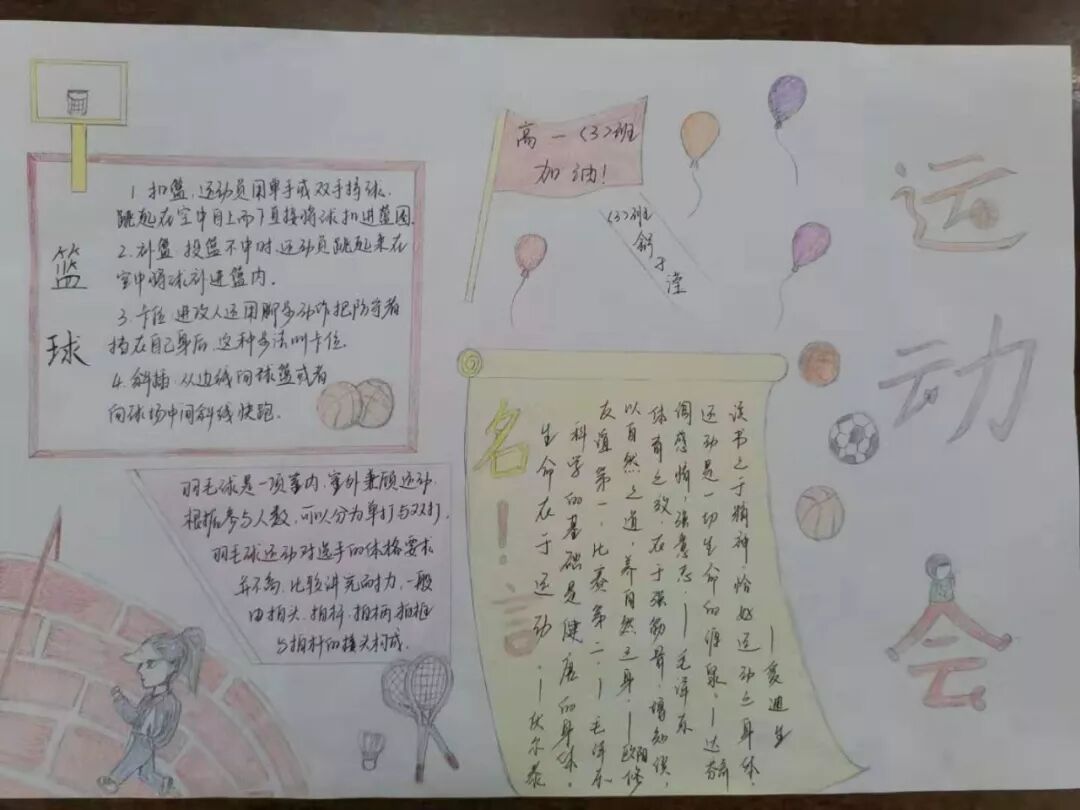 篮球
1.扣篮,运动员用单手或双手持球,
跳起在空中自上而下直接将球扣进篮圈.
2.补篮,投篮不中时,运动员跳起来在
空中将球补进篮内.
3.卡位,进攻人运用脚步动作把防守者
挡在自己身后,这种步法叫卡位.
4.斜插,从边线向球篮或者
向球场中间斜线快跑.
羽毛球是一项室内,室外兼顾运动.
根据参与人数,可以分为单打与双打.
羽毛球运动对选手的体格要求
并不高,比较讲究耐力,一般
由拍头、拍杆、拍柄、拍框
与拍杆的接头构成.
高一(3)班
加油!
(3)班
舒子滢
名!言
读书之于精神,恰如运动之身体.
—爱迪生
运动是一切生命的源泉.—达芬奇
体育之效,在于强筋骨,增知识,
调感情,强意志.—毛泽东
以自然之道,养自然之身.—欧阳修
友谊第一,比赛第二.—毛泽东
科学的基础是健康的身体.
生命在于运动.—伏尔泰
运动会